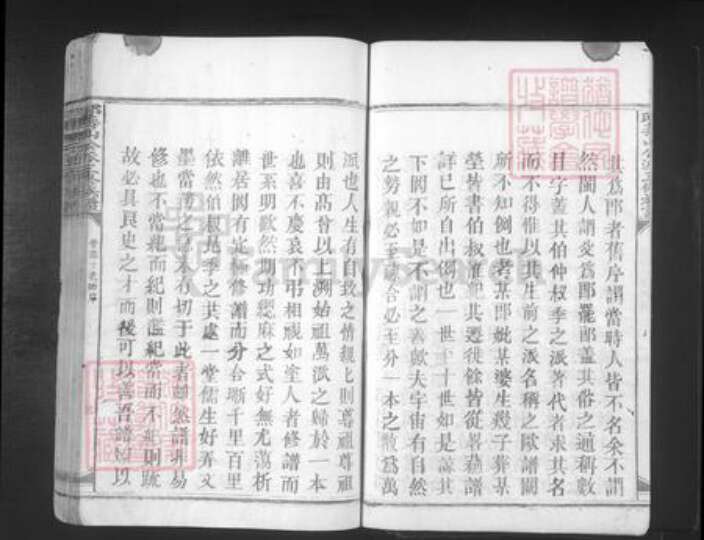 其爲郡者舊序謂當時人皆不名余不謂
然閩人謂父爲郎罷郎蓋其俗之通稱數
目字蓋其伯仲叔季之派著代者求其名
而不得惟以其生前之派名稱之歐譜闕
所不知例也者某郎妣某婆生幾子葬某
塋皆書伯叔誰某其遷徙餘皆從畧蘇譜
詳已所自出例也一世二十世如是諒其
下罔不如是不謂之善歟大宇宙有自然
之勢親必至疎合必至分一本之散爲萬
派也人生有自致之情親上則尊祖尊祖
則由高曾以上溯始祖萬派之歸於一本
也喜不慶哀不弔相視如塗人者修譜而
世系明歡然期功緦麻之式好無尤蕩析
離居罔有定極修譜而分合嘶千里百里
依然伯叔兄季之共處一堂儒生好弄文
墨當務之急未有切于此者顧然譜非易
修也不當紀而紀則濫紀當而不紀則疏
故必具良史之才而後可以善吾譜始以